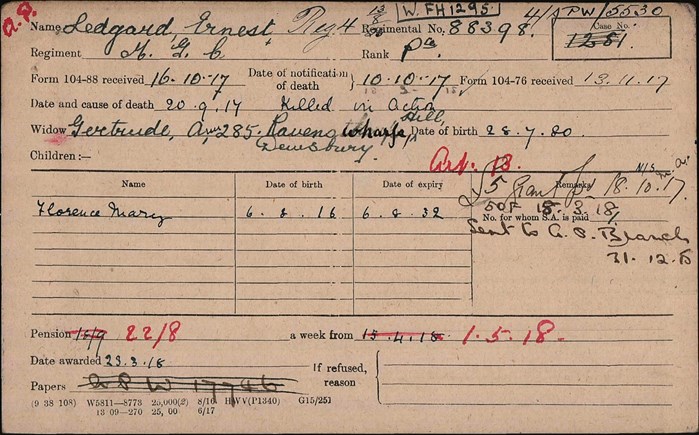 A.P. 13/8 W. FH1295 4/APW/5530
Name Ledgard, Ernest Reg 4 Regimental No. 88398. Case No. 1281
Regiment M. G. C. Rank Pte
Form 104-88 received 16.10.17 Date of notification of death 10.10.17 Form 104-76 received 13.11.17
Date and cause of death 20.9.17 Killed in Action
Widow Gertrude, 285. Ravens Wharfe Hill, Date of birth 28.7.80
Dewsbury.
Children:— Art. 13.
Name Date of birth Date of expiry Remarks
£5 Grant 18.10.17.
Florence Mary 6.8.16 6.8.32 50F 18.3.18
No. for whom S.A. is paid
Sent to A.P. Branch
31.12.15
Pension 15/9 22/8 a week from 15.4.18 1.5.18.
Date awarded 23.3.18 If refused, reason
Papers A P W 17746
(9 38 108) W5811—8773 25,000(2) 8/16 HWV(P1340) G15/251
13 09—270 25,00 6/17